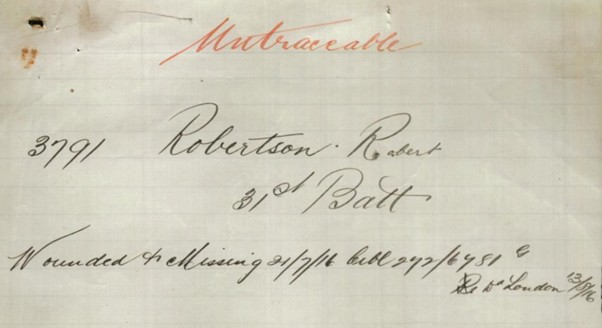 Untraceable
3791 Robertson. Robert
31st Batt
Wounded & Missing 21/7/16 Cable 272/6781 G
London 13/8/16